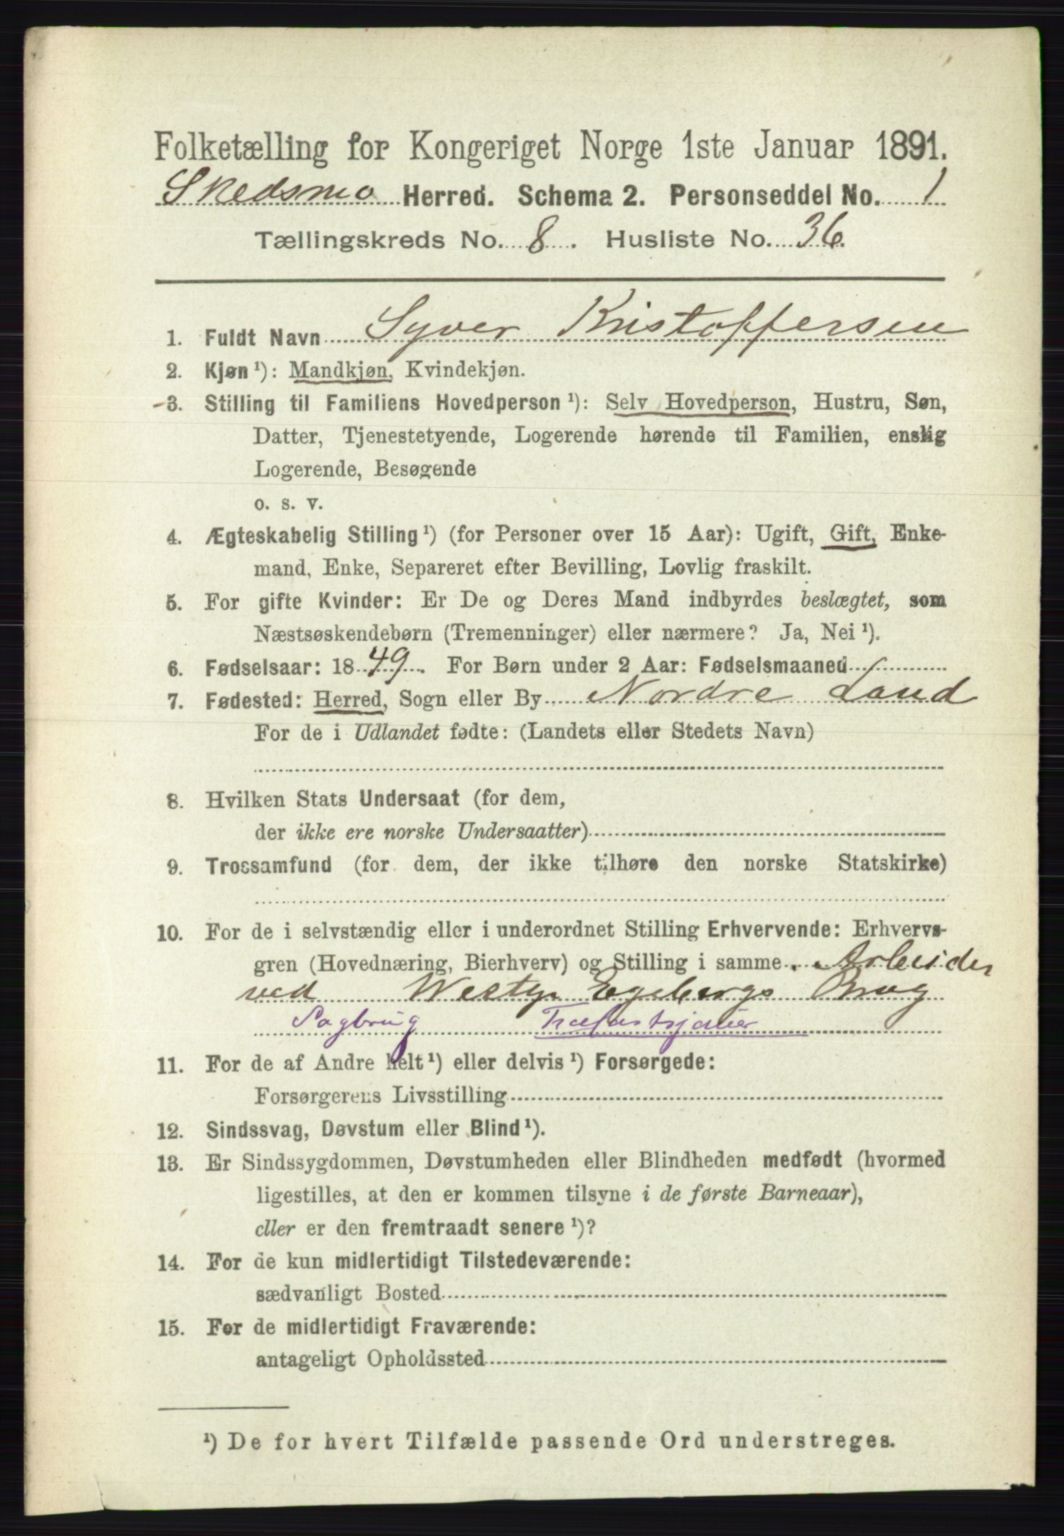 Folketælling for Kongeriget Norge 1ste Januar 1891.
Skedsmo Herred. Schema 2. Personseddel No. 1
Tællingskreds No. 8. Husliste No. 36.
1. Fuldt Navn Syver Kristoffersen
2. Kjøn ¹): Mandkjøn, Kvindekjøn.
3. Stilling til Familiens Hovedperson ¹): Selv Hovedperson, Hustru, Søn,
Datter, Tjenestetyende, Logerende hørende til Familien, enslig
Logerende, Besøgende
o. s. v.
4. Ægteskabelig Stilling ¹) (for Personer over 15 Aar): Ugift, Gift, Enke-
mand, Enke, Separeret efter Bevilling, Lovlig fraskilt.
5. For gifte Kvinder: Er De og Deres Mand indbyrdes beslægtet, som
Næstsøskendebørn (Tremenninger) eller nærmere? Ja, Nei ¹).
6. Fødselsaar: 1849. For Børn under 2 Aar: Fødselsmaaned
7. Fødested: Herred, Sogn eller By Nordre Land
For de i Udlandet fødte: (Landets eller Stedets Navn)
8. Hvilken Stats Undersaat (for dem,
der ikke ere norske Undersaatter)
9. Trossamfund (for dem, der ikke tilhøre den norske Statskirke)
10. For de i selvstændig eller i underordnet Stilling Erhvervende: Erhvervs-
gren (Hovednæring, Bierhverv) og Stilling i samme. Arbeider
ved Westye Egebergs Brug
Sagbrug
11. For de af Andre helt ¹) eller delvis ¹) Forsørgede:
Forsørgerens Livsstilling
12. Sindssvag, Døvstum eller Blind ¹).
13. Er Sindssygdommen, Døvstumheden eller Blindheden medfødt (hvormed
ligestilles, at den er kommen tilsyne i de første Barneaar),
eller er den fremtraadt senere ¹)?
14. For de kun midlertidigt Tilstedeværende:
sædvanligt Bosted
15. For de midlertidigt Fraværende:
antageligt Opholdssted
¹) De for hvert Tilfælde passende Ord understreges.